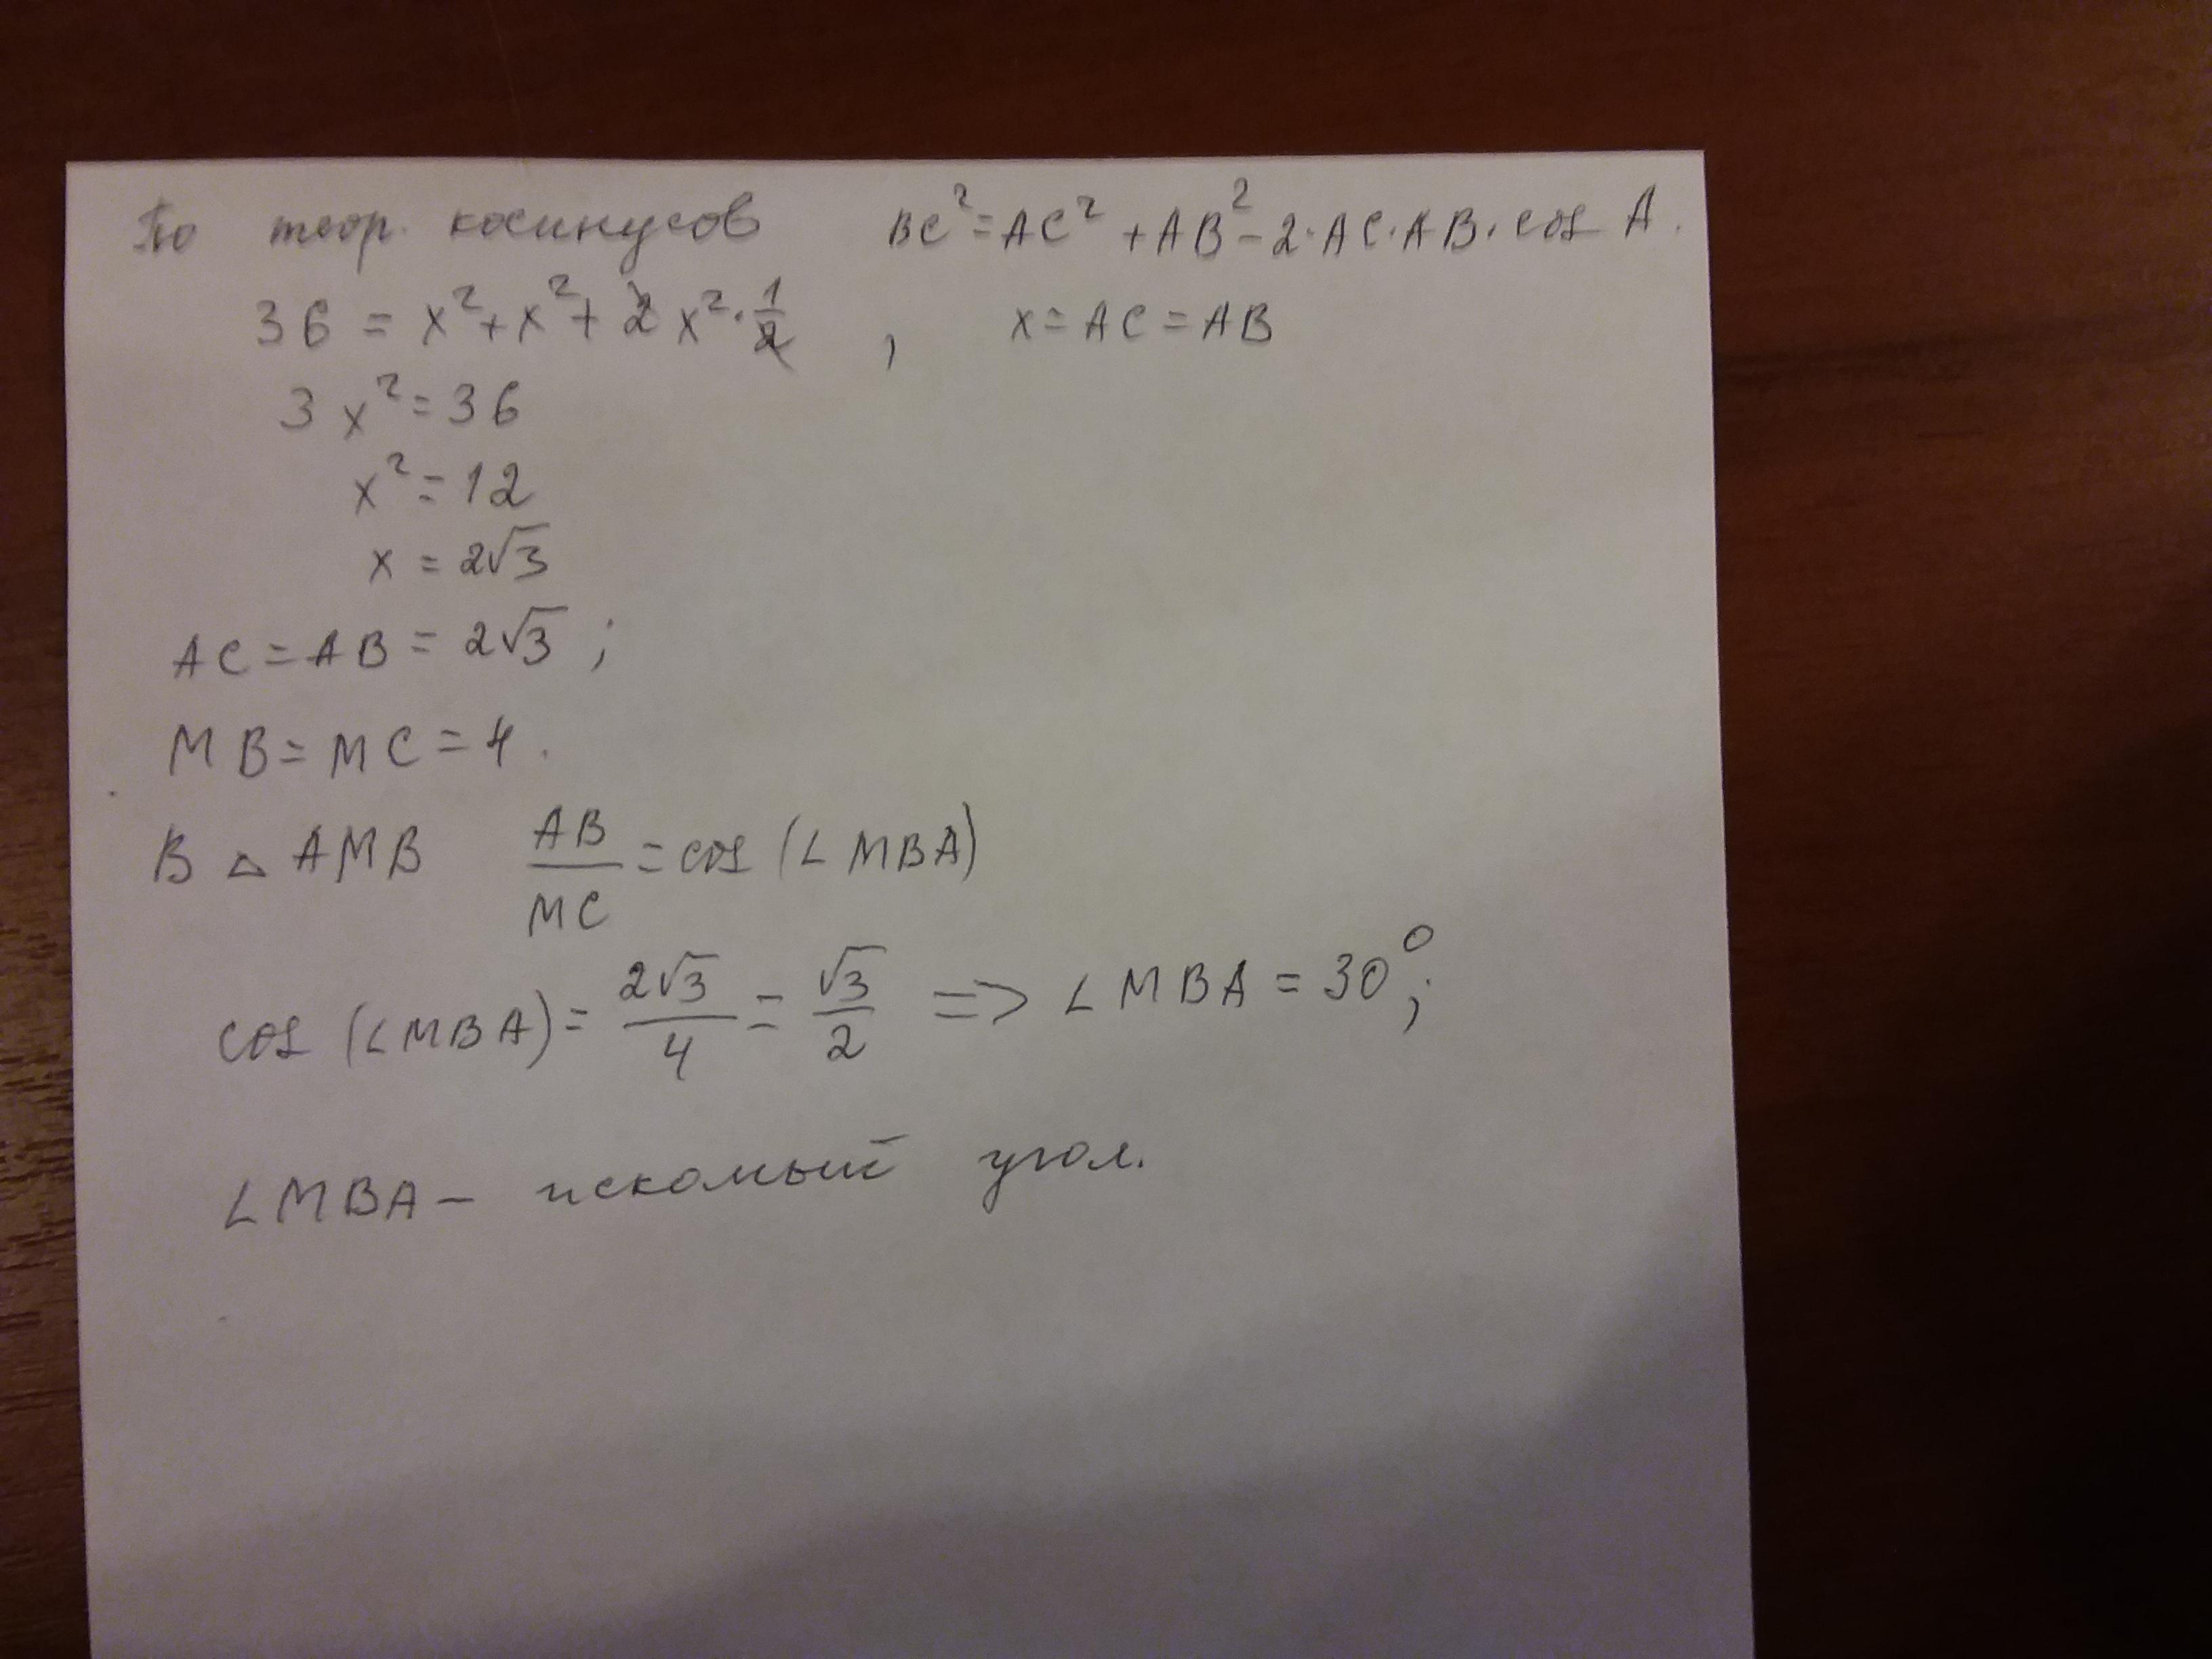 По теор. косинусов BC² = AC² + AB² - 2·AC·AB·cos A.
36 = x² + x² + 2x²·1/2 , x = AC = AB
3x² = 36
x² = 12
x = 2√3
AC = AB = 2√3 ;
MB = MC = 4.
В △ AMB AB/MC = cos (∠MBA)
cos (∠MBA) = 2√3/4 = √3/2 => ∠MBA = 30°;
∠MBA – искомый угол.